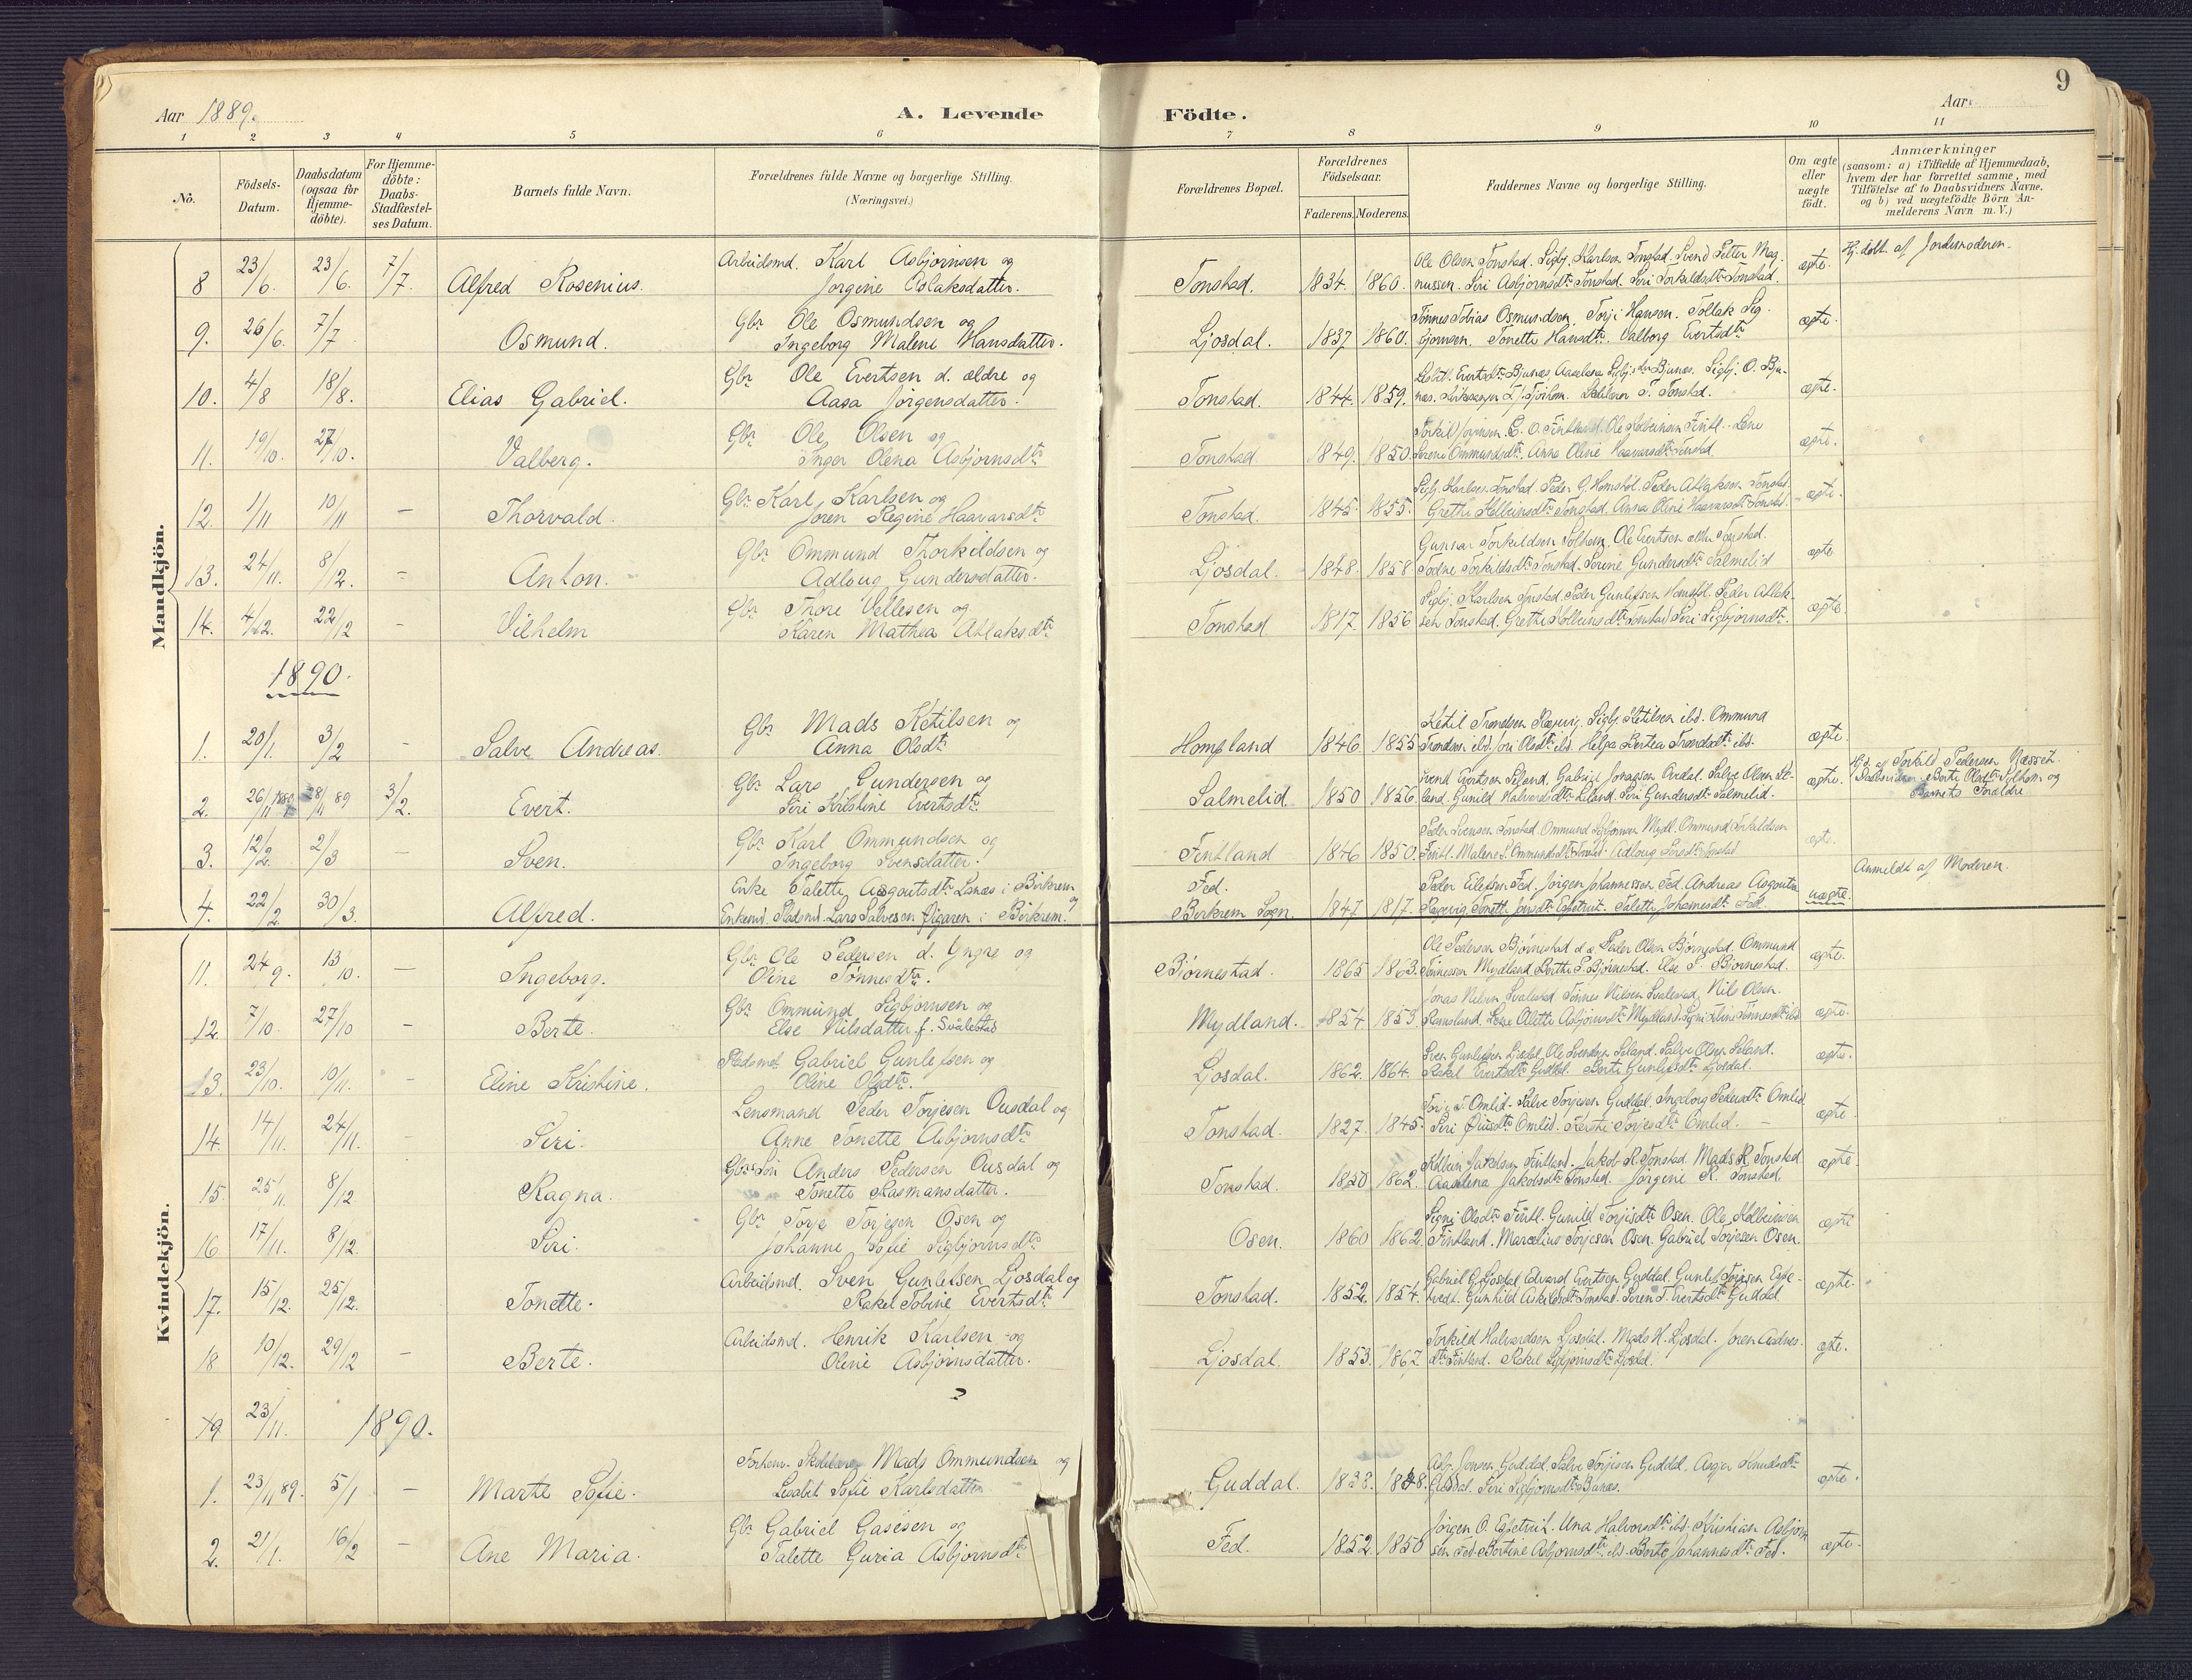 9
Aar 1889.
A. Levende Födte.
Aar
1 2 3 4 5 6 7 8 9 10 11
No.
Födsels-Datum.
Daabsdatum (ogsaa for Hjemme-döbte).
For Hjemme-döbte: Daabs-Stadfæstel-ses Datum.
Barnets fulde Navn.
Forældrenes fulde Navne og borgerlige Stilling.
(Næringsvei.)
Forældrenes Bopæl.
Forældrenes Födselsaar.
Faderens. Moderens.
Faddernes Navne og borgerlige Stilling.
Om ægte eller uægte födt.
Anmærkninger
(saasom: a) i Tilfælde af Hjemmedaab, hvem der har forrettet samme, med Tilföielse af to Daabsvidners Navne, og b) ved uægtefödte Börn An-melderens Navn m. V.)
Mandkjön.
8 23/6. 23/6. 7/7. Alfred Rosenius. Arbeidsmd. Karl Asbjornsen og
Jorgine Aslaksdatter. Tonstad. 1834. 1860. Ole Olsen Tonstad. Sigbj. Karlsen Tonstad. Svend Petter Mag-
nussen. Siri Asbjornsdtr Tonstad. Siri Torkildsdtr Tonstad. ægte. Hj. döbt af Jordemoderen.
9. 26/6. 7/7 Osmund. Gbr Ole Osmundsen og
Ingeborg Malene Hansdatter. Ljosdal. 1837 1860. Tonnes Tobias Osmundsen. Torje Hansen. Tollak Sig-
bjornsen. Tonette Hansdtr. Valborg Evertsdtr ægte.
10. 4/8 18/8. Elias Gabriel. Gbr Ole Evertsen d. ældre og
Aasa Jorgensdatter. Tonstad. 1844. 1859. Tonstad. ægte.
11. 19/10. 27/10. Valberg. Gbr Ole Olsen og
Inger Olena Asbjornsdtr Tonstad. 1849. 1850. Anna Oline Haavarsdtr Tonstad. ægte.
12. 1/11 10/11 — Thorvald. Gbr Karl Karlsen og
Joren Regine Haavarsdtr Tonstad. 1845. 1855. Sigbj. Karlsen Tonstad. Peder G. Homstöl. Peder Atlaksen Tonstad.
Grethe Tonstad. Anna Oline Haavarsdtr Tonstad. ægte.
13. 24/11. 8/12. — Anton. Gbr Ommund Thorkildsen og
Adloug Gundersdatter. Ljosdal. 1848. 1858 Gunnar Torkildsen Solhom. Ole Evertsen Tonstad.
Todne Torkildsdtr Tonstad. Serine Gundersdtr Salmelid ægte
14. 4/12. 22/12 — Vilhelm Gbr Thore Vellesen og
Karen Mathea Atlaksdtr Tonstad 1817. 1856 Sigbj. Karlsen Tonstad. Peder Gunlefsen Homstöl. Peder Atlak-
sen Tonstad. Grethe Tonstad. Siri Sigbjornsdtr. ægte.
1890.
1. 20/1. 3/2 — Salve Andreas. Gbr Mads Ketilsen og
Anna Olsdtr Hompland 1846. 1855 Ketil Trondsen Ræyvig. Sigbj. Ketilsen ibd. Ommund
Trondsen ibd. Olsdtr ibd. Helga Bertea Trondsdtr ibd. ægte.
2. 26/11 1889 28/11 89 3/2. Evert. Gbr Lars Gundersen og
Siri Kristine Evertsdtr. Salmelid 1850 1856. Svend Evertsen Seland. Gabriel Jonassen Ovedal. Salve Olsen Se-
land. Gunild Halvorsdtr Seland. Siri Gundersdtr Salmelid. ægte. Hj. d. af Torkild Pedersen Næsset.
Berte Olsdtr Solhom og
Barnets Forældre
3. 12/2. 2/3 — Sven. Gbr Karl Ommundsen og
Ingeborg Svensdatter. Fintland 1846 1850. Peder Svensen Tonstad. Ommund Mydl. Ommund Torkildsen
Fintl. Malene S. Ommundsdtr Tonstad. Adloug Tonstad ægte.
4. 22/2. 30/3. Alfred. Enke Talette Asgautsdtr i Birkrem og
Enkemd. Stedsmd. Lars Salvesen i Birkrem. Fed.
Birkrem Sogn. 1847 1817. Peder Eilefsen Fed. Jorgen Johannessen Fed. Andreas Asgautsen
Talette Johannesdtr Fed. uægte. Anmeldt af Moderen.
Kvindekjön.
11. 24/9. 13/10. — Ingeborg. Gbr Ole Pedersen d. Yngre og
Oline Tønnesdtr. Bjornestad. 1865 1863. Ole Pedersen Bjørnestad d.æ. Peder Olsen Bjørnestad. Ommund
Tønnessen Mydland. Berthe P. Bjornestad. Else P. Bjornestad. ægte.
12 7/10. 27/10 — Berte. Gbr Ommund Sigbjornsen og
Else Nilsdatter f. Svalestad Mydland. 1854 1853. Jonas Nilsen Svalestad. Tonnes Nilsen Svalestad. Nils Olsen
Olette Asbjornsdtr Mydland. ægte.
13. 23/10. 10/11. — Eline Kristine. Stedsmd. Gabriel Gunlefsen og
Oline Olsdtr. Ljosdal. 1862. 1864. Sven Gunlefsen Ljosdal. Ole Svendsen Seland. Salve Olsen Seland.
Rakel Evertsdtr Guddal. Berte Gunlefsdtr Ljosdal. ægte.
14. 14/11. 24/11. — Siri. Lensmand Peder Torjesen Ousdal og
Anne Tonette Asbjornsdtr Tonstad. 1827. 1845. Torje T. Omlid. Salve Torjesen Guddal. Ingeborg Pedersdtr Omlid
Siri Omlid. Kersti Torjesdtr Omlid. — ægte.
15. 25/11. 8/12 Ragna. Gbr Søn Anders Pedersen Ousdal og
Tonette Rasmusdatter. Tonstad. 1850 1862. Fintland. Jakob R. Tonstad. Mads R. Tonstad
Aaselena Jakobsdtr Tonstad. Jorgine R. Tonstad. ægte.
16 17/11. 8/12. Siri. Gbr Torje Torjesen Osen og
Johanne Sofie Sigbjornsdtr Osen. 1860 1862. Signe Olsdtr Fintl. Gunild Torjesdtr Osen. Ole
Fintland. Marcelius Torjesen Osen. Gabriel Torjesen Osen. ægte
17. 15/12. 25/12. Tonette. Arbeidsmd. Sven Gunlefsen Ljosdal og
Rakel Tobine Evertsdtr Tonstad. 1852. 1854. Gabriel G. Ljosdal. Edvard Evertsen Guddal. Gunlef Torjesen
Gunhild Askildsdtr Tonstad. Seren T. Evertsdtr Guddal. ægte.
18 10/12. 29/12 — Berte. Arbeidsmd. Henrik Karlsen og
Oline Asbjornsdatter. Ljosdal. 1853. 1867. Torkild Halvardsen Ljosdal. Mads H. Ljosdal. Joren Aadnes-
dtr Fintland. Rakel Sigbjornsdtr Ljosdal. ægte.
19 23/11. 1890.
1. 23/11 89. 5/1 — Marte Sofie. Mads Ommundsen og
Lisabet Sofie Karlsdatter Guddal. 1838. Jonsen Guddal. Salve Torjesen Guddal. Knudsdtr
Guddal. Siri Sigbjornsdtr Bjunes. ægte.
2. 21/1. 16/2 — Ane Maria. Gbr Gabriel Gasesen og
Talette Guria Asbjornsdtr Fed. 1852. 1850 Jörgen O. Espetveit. Una Halvorsdtr ibd. Kristian Asbjörn-
sen Fed. Bertine Asbjornsdtr ibd. Berte Johannesdtr Fed. ægte.